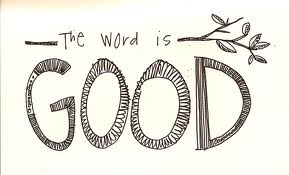 The Word is
GOOD